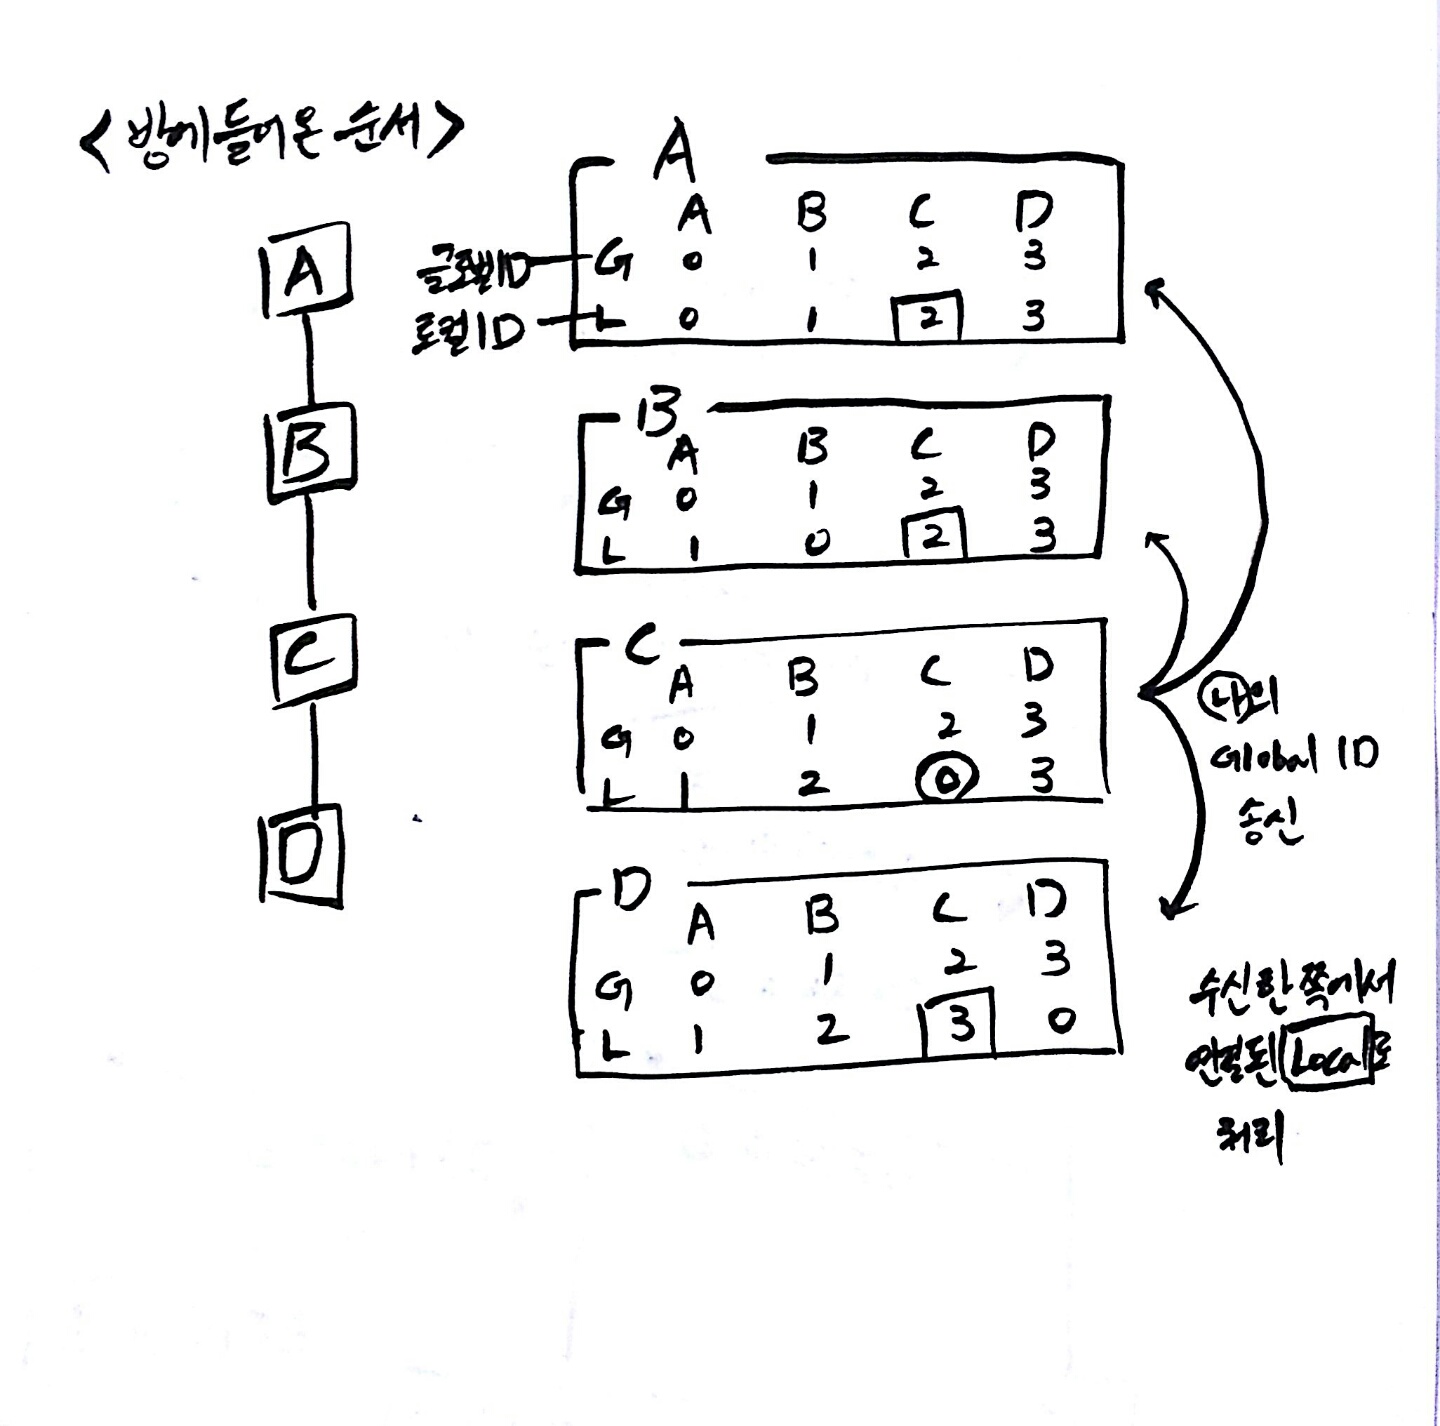 <방에 들어온 순서>
A
B
C
D
글로벌ID
로컬ID
A
A B C D
G 0 1 2 3
L 0 1 2 3
B
A B C D
G 0 1 2 3
L 1 0 2 3
C
A B C D
G 0 1 2 3
L 1 2 0 3
D
A B C D
G 0 1 2 3
L 1 2 3 0
나의
Global ID
송신
수신한 쪽에서
연결된 Local로
처리